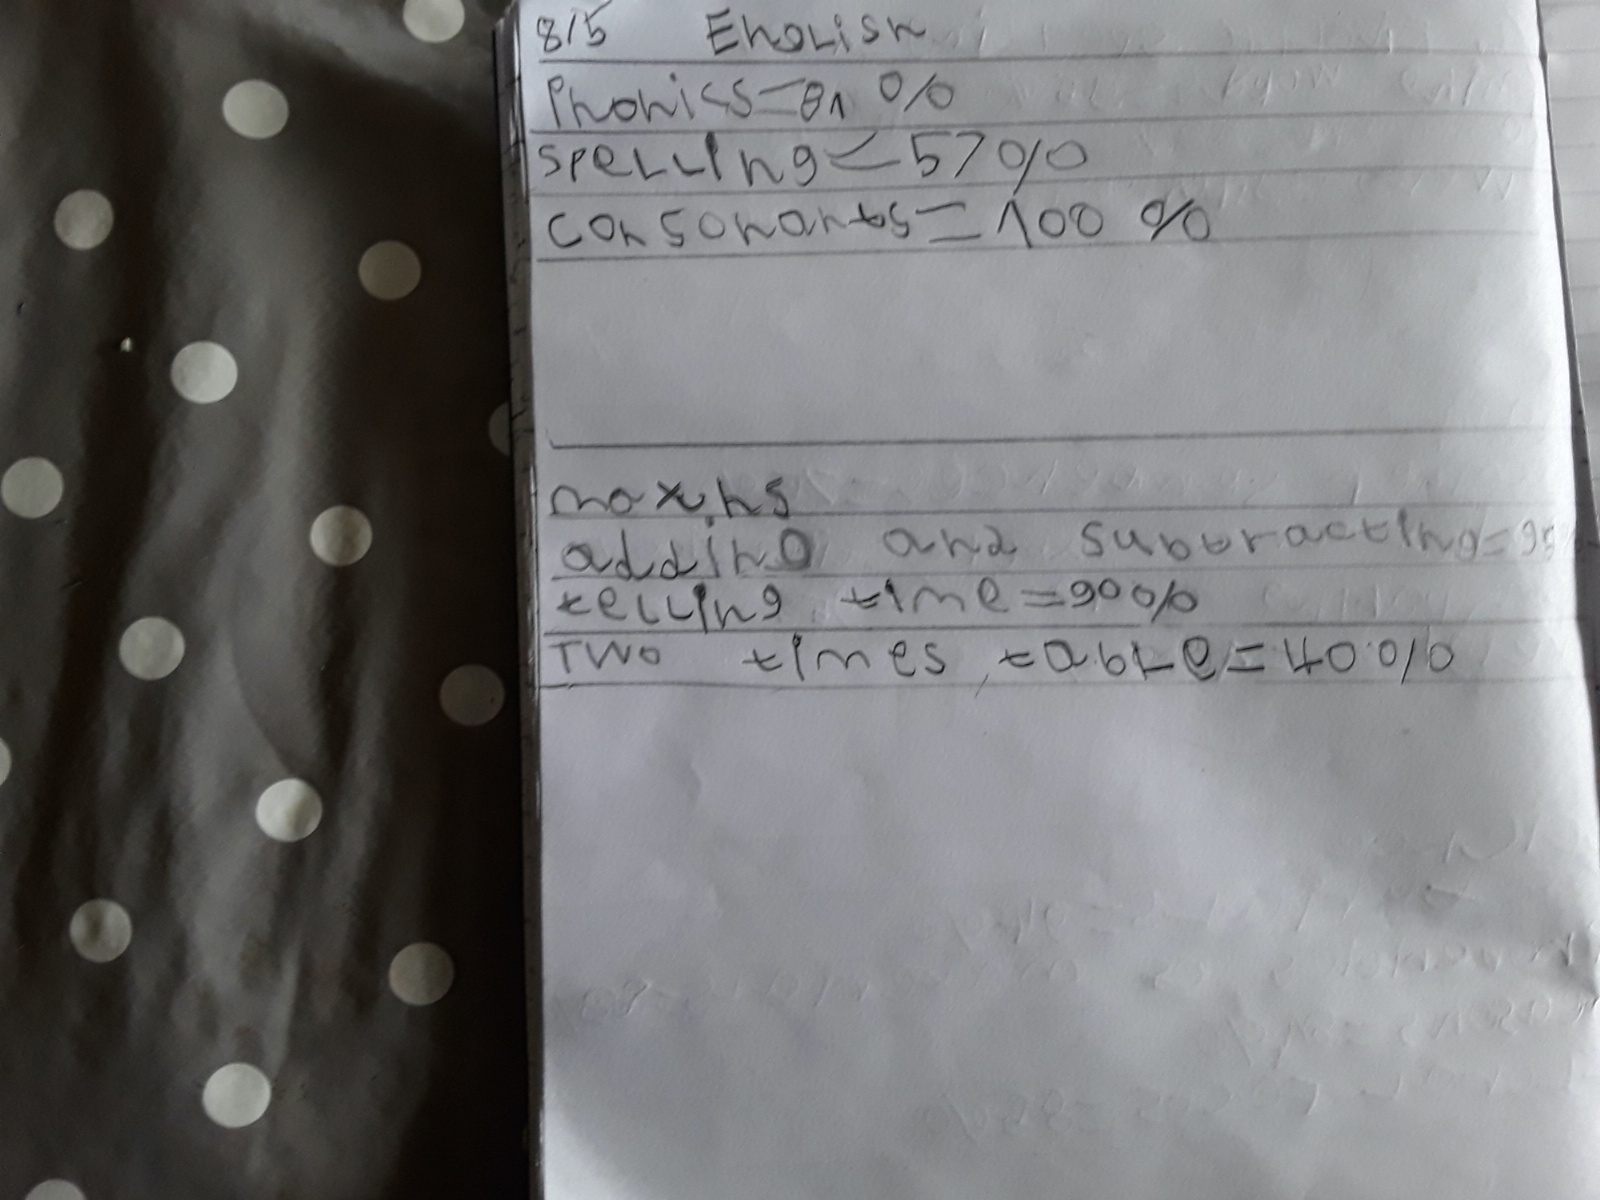 8/5 English
Phonics=81 %
spelling=57%
consonants=100 %
maths
adding and subtracting=95
telling time=90%
Two times table=40%